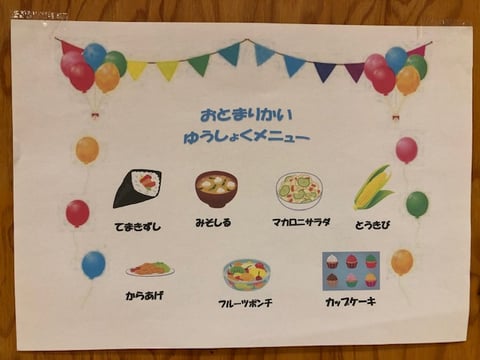 おとまりかい
ゆうしょくメニュー
てまきずし
みそしる
マカロニサラダ
とうきび
からあげ
フルーツポンチ
カップケーキ